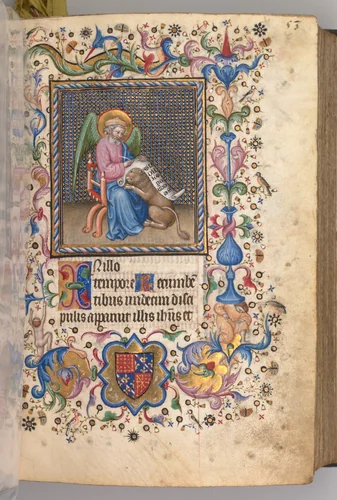 53
N illo
tempore Recumbē
tibus undecim disci
pulis apparuit illis ihūs et